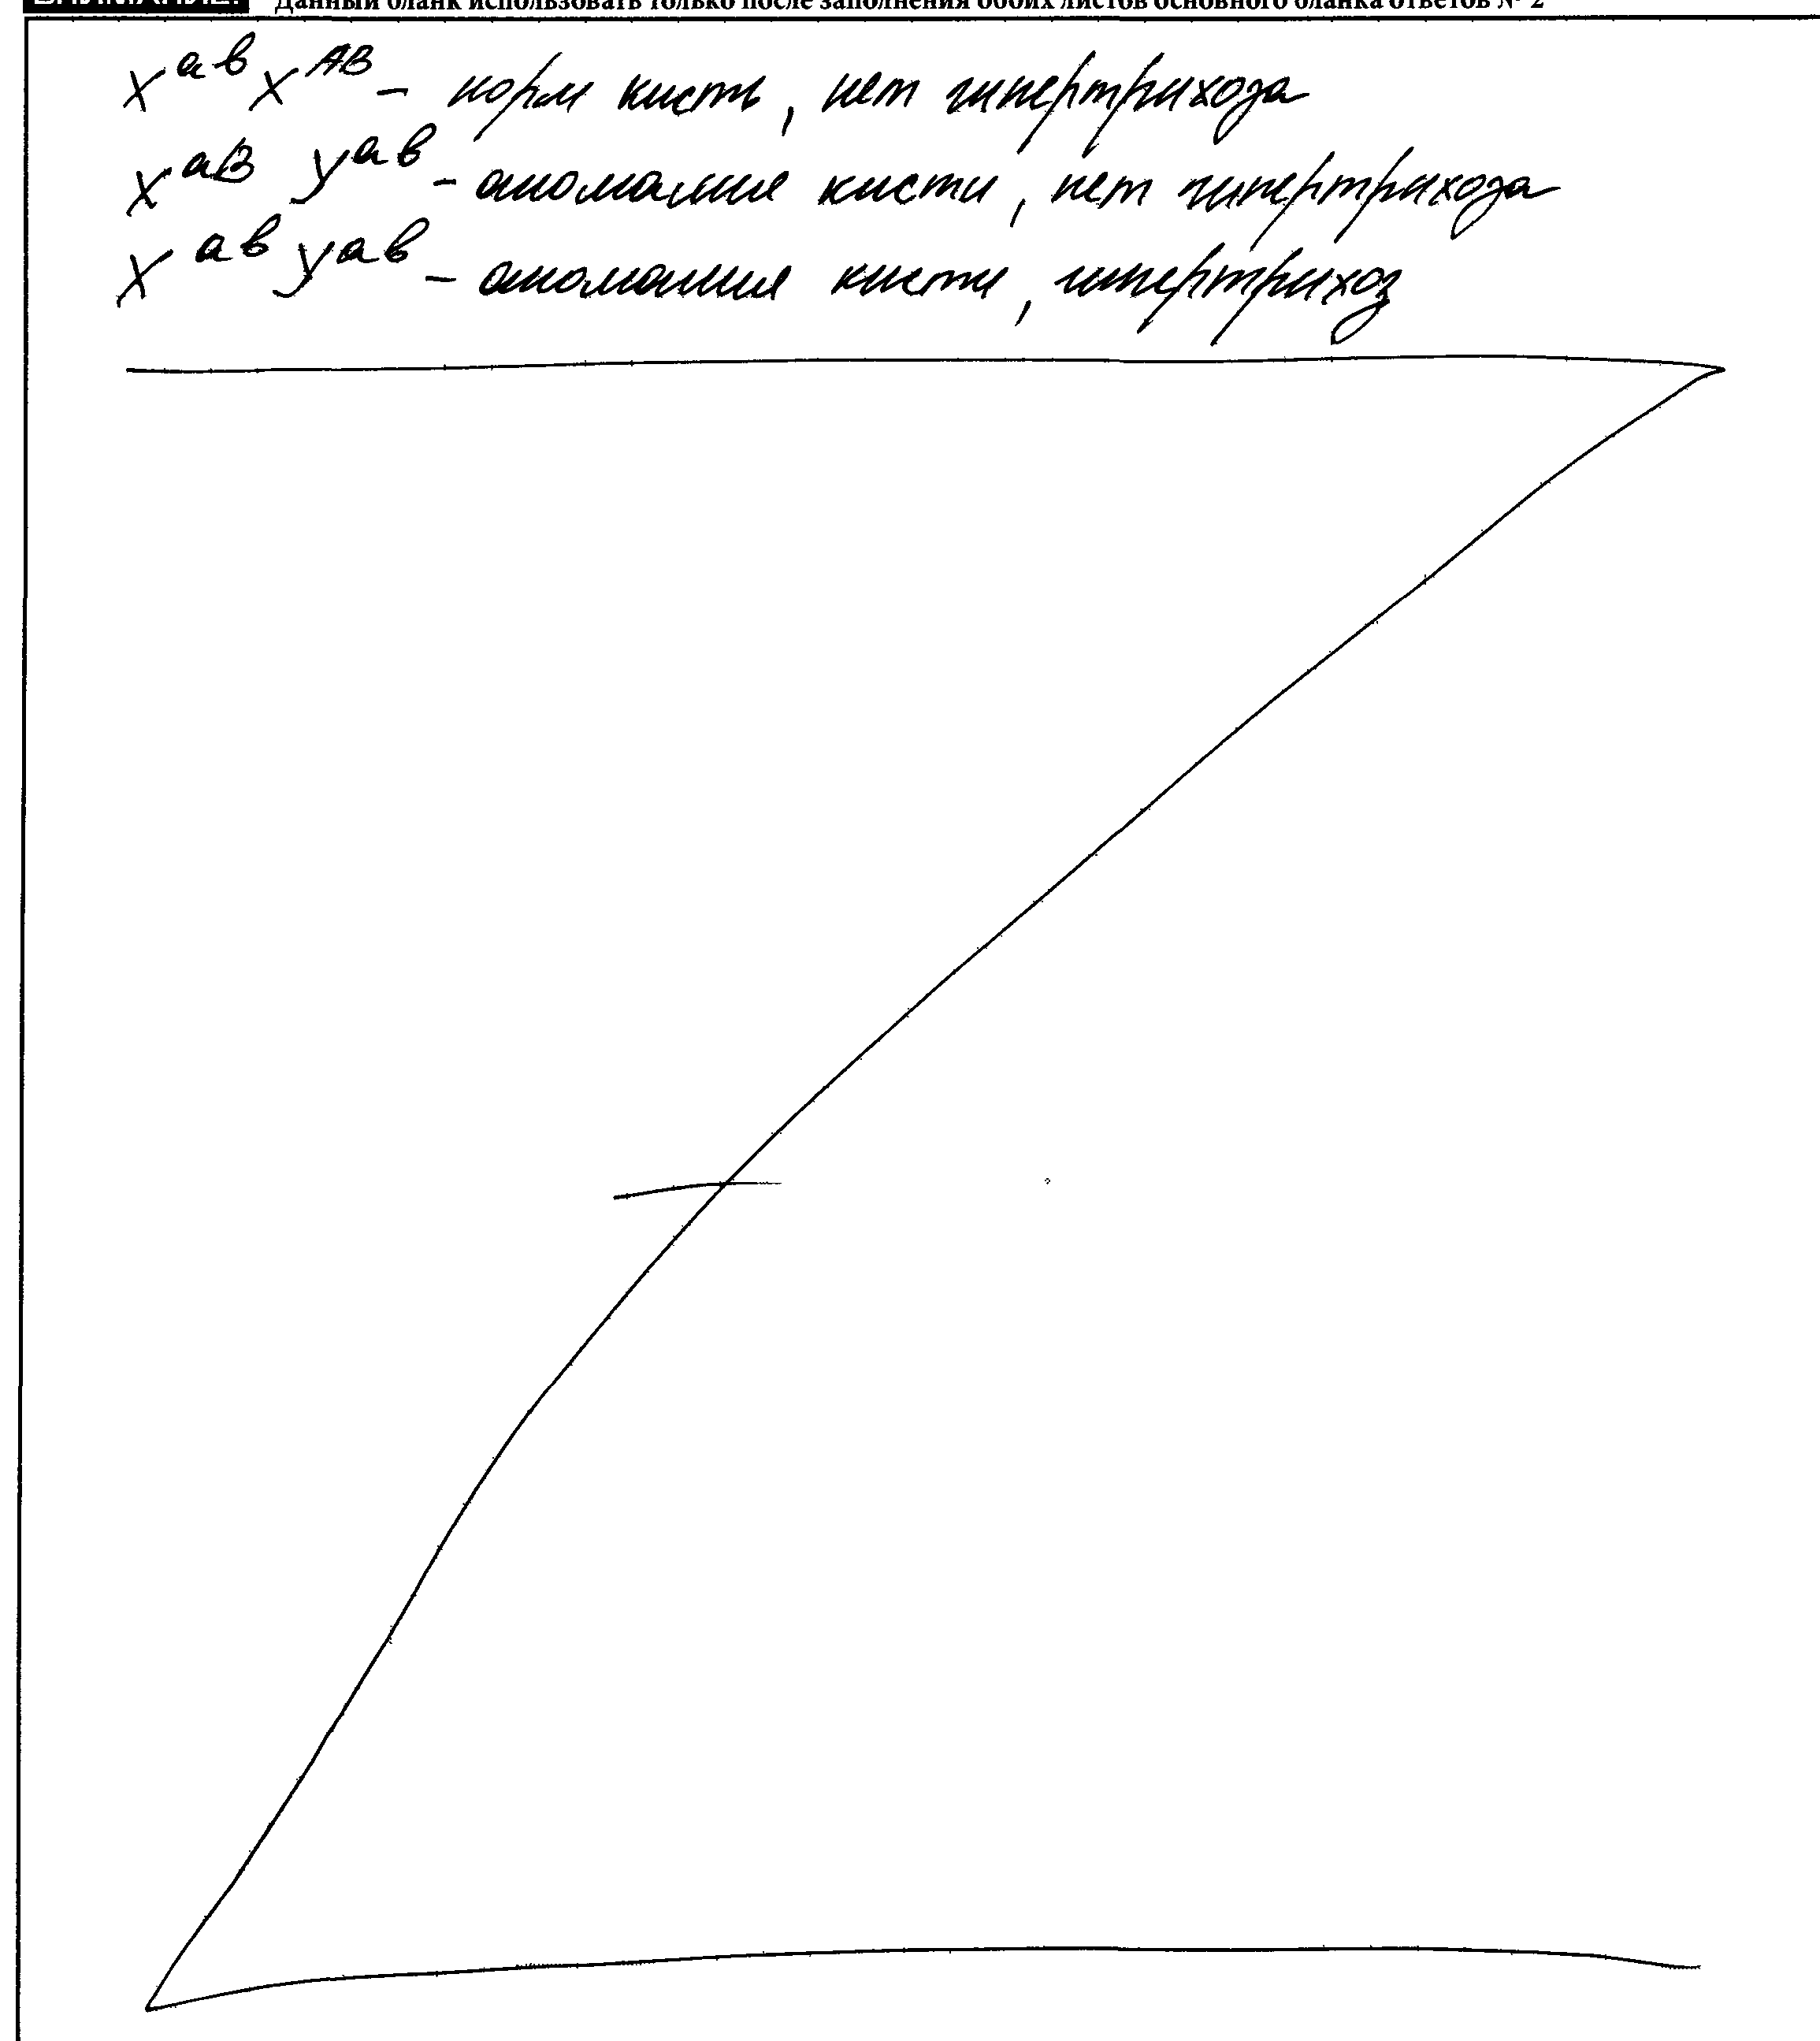 ВНИМАНИЕ! Данный бланк использовать только после заполнения обоих листов основного бланка ответов № 2
X^ав X^АВ - норм кисть, нет гипертрихоза
X^аВ У^ав - аномалия кисти, нет гипертрихоза
X^ав У^ав - аномалия кисти, гипертрихоз